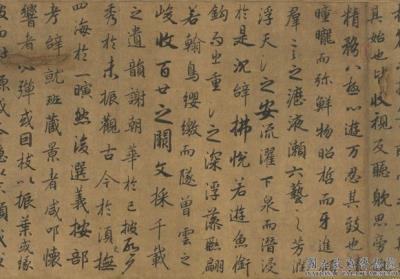 其始也皆收視反聽耽思傍
精騖八極心遊万仞其致也
曈曨而弥鮮物昭晢而互進
羣言之瀝液漱六藝之芳潤
浮天淵之安流濯下泉而潛浸
於是沈辞拂悅若遊魚銜
鉤而出重淵之深浮藻聯翩
若翰鳥纓繳而墜曾雲之
峻收百世之闕文採千載
之遺韻謝朝華於已披啓夕
秀於未振觀古今於須臾撫
四海於一瞬然後選義按部
考辞就班藏景者咸叩懷
響者必彈或因枝以振葉或緣
波而討源或本隱以
國立故宮博物院